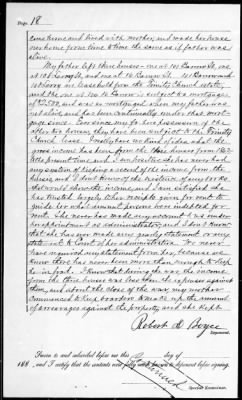 Page 18
came home and lived with mother, and made her house
her home from time to time the same as if father was
alive.
My father left three houses - one at 101 Barrow St., one
at 108 Leroy St., and one at 16 Barrow St. 101 Barrow and
108 Leroy on leasehold from the Trinity Church estate,
and the one at No 16 Barrow is subject to a mortgage
of $2500, and was so mortgaged when my father was
alive, and has been continually under that mort-
gage since. Ever since my father's possession of the
other two houses, they have been subject to the Trinity
Church lease. I really have no kind of idea what the
gross income has been from the three houses from 1862 to
the present time, and I am positive she has never had
any system of keeping account of the income from the
houses, and I don't know of the existence of any books
that would show the income, and I am satisfied she
has trusted largely to her receipts given for rent to
guide her what amount persons were indebted for
rent. She never has made any account to us under
her appointment as administratrix, and I don't know
that she has ever made any yearly statement or even
stated out to Court of her administration. We never
have required any statement from her, because we
knew there has never been more than enough to keep
her in food. I know that during the war, the income
from the three houses was less than the expenses against
them, and about the close of the war, my mother
commenced to keep boarders to make up the amount
of arrearages against the property, and she kept
Robert A. Boyce
Deponent.
Sworn to and subscribed before me this day of
188 , and I certify that the contents were fully made known to deponent before signing.
Special Examiner.